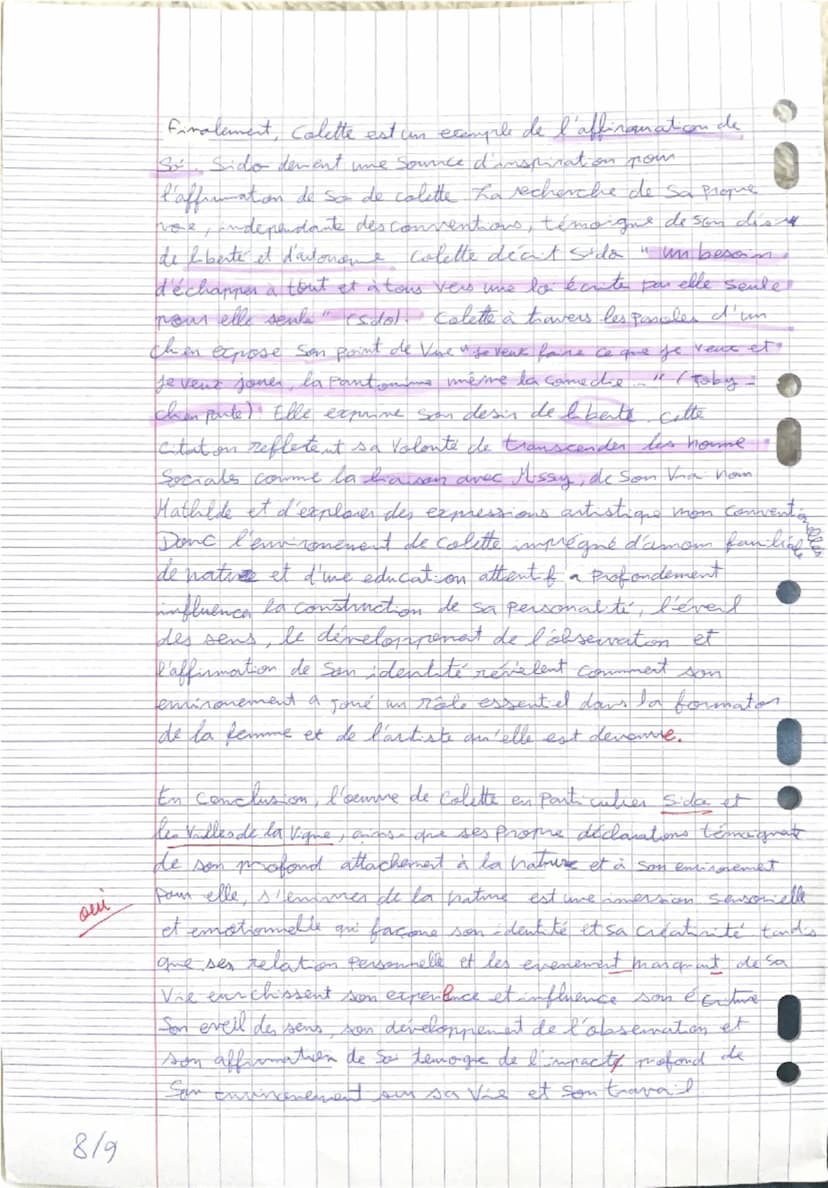 Finalement, Colette est un exemple de l'affirmation de
Soi. Sido devient une Source d'inspiration pour
l'affirmation de soi de colette. La recherche de Sa propre
voie, independante des conventions, témoigne de son
de liberté et d'autonomie. Colette décrit Sido "un besoin
d'échapper à tout et à tous vers une loi écrite par elle seule
pour elle seule" (Sido). Colette à travers les paroles d'un
chien expose son point de Vue "je veux faire ce que je veux et
je veux jouer, la Pantomime même la comedie..." (Toby-
chien parle). Elle exprime son desir de liberté. cette
citation refletent sa Volonté de transcender les norme
Sociales comme la liaison avec Missy, de Son Vrai nom
Mathilde et d'explorer des expressions artistique non
Donc l'environement de colette imprégné d'amour familial
de nature et d'une education attentif a profondement
influencé la construction de sa personalité, l'éveil
des sens, le développement de l'observation et
l'affirmation de son identité révèlent comment son
environement a joué un rôle essentiel dans la formation
de la femme et de l'artiste qu'elle est devenue.
En conclusion, l'oeuvre de Colette en particulier Sido et
les Vrilles de la Vigne, ainsi que ses propre déclarations témoignent
de son profond attachement à la nature et à son environement
Pour elle, de la nature est une immersion sensorielle
oui
et emotionnelle qui façone son identité et sa créativité tandis
que ses relation personnelle et les evenement marquant de sa
Vie enrichissent son experience et influence son écriture
Son eveil des sens, son développement de l'observation et
son affirmation de Soi temoige de l'impact profond de
Son environement sur sa Vie et Son travail
8/9